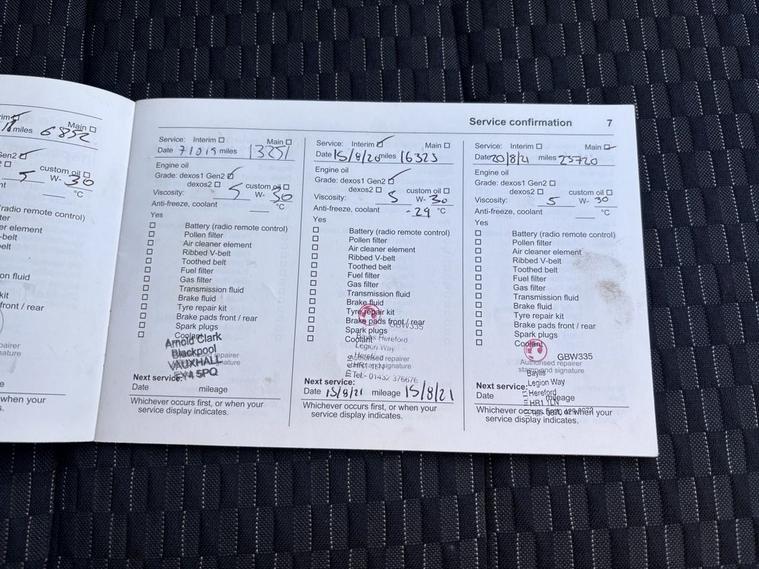 miles 6852
Main ☐
Gen2
custom oil ☐
5 W- 30
°C
(radio remote control)
er element
-belt
elt
on fluid
kit
front / rear
when your
Service confirmation 7
Service: Interim ☐ Main ☐
Date miles
Engine oil
Grade: dexos1 Gen2 ☐
dexos2 ☐ custom oil ☐
Viscosity: 5 W- 30
Anti-freeze, coolant ___ °C
Yes
☐ Battery (radio remote control)
☐ Pollen filter
☐ Air cleaner element
☐ Ribbed V-belt
☐ Toothed belt
☐ Fuel filter
☐ Gas filter
☐ Transmission fluid
☐ Brake fluid
☐ Tyre repair kit
☐ Brake pads front / rear
☐ Spark plugs
☐ Coolant
Arnold Clark
Blackpool
VAUXHALL
FY4 5PQ
Next service:
Date mileage
Whichever occurs first, or when your
service display indicates.
Service: Interim ☐ Main ☐
Date 15/8/20 miles 16323
Engine oil
Grade: dexos1 Gen2 ☐
dexos2 ☐ custom oil ☐
Viscosity: 5 W- 30
Anti-freeze, coolant -29 °C
Yes
☐ Battery (radio remote control)
☐ Pollen filter
☐ Air cleaner element
☐ Ribbed V-belt
☐ Toothed belt
☐ Fuel filter
☐ Gas filter
☐ Transmission fluid
☐ Brake fluid
☐ Tyre repair kit
☐ Brake pads front / rear
☐ Spark plugs
☐ Coolant
GBW335
Hereford
Legion Way
Hereford
Tel:- 01432 376676
Next service:
Date 15/8/21 mileage 15/8/21
Whichever occurs first, or when your
service display indicates.
Service: Interim ☐ Main ☐
Date 20/8/21 miles 23720
Engine oil
Grade: dexos1 Gen2 ☐
dexos2 ☐ custom oil ☐
Viscosity: 5 W- 30
Anti-freeze, coolant ___ °C
Yes
☐ Battery (radio remote control)
☐ Pollen filter
☐ Air cleaner element
☐ Ribbed V-belt
☐ Toothed belt
☐ Fuel filter
☐ Gas filter
☐ Transmission fluid
☐ Brake fluid
☐ Tyre repair kit
☐ Brake pads front / rear
☐ Spark plugs
☐ Coolant
GBW335
Authorised repairer
stamp and signature
Baylis
Legion Way
Hereford
HR1 1LN
Next service:
Date mileage
Whichever occurs first, or when your
service display indicates.